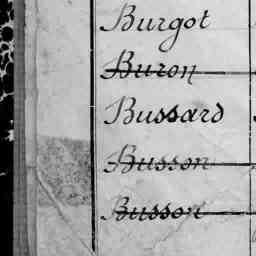 Burgot
Buron
Bussard
Busson
Busson